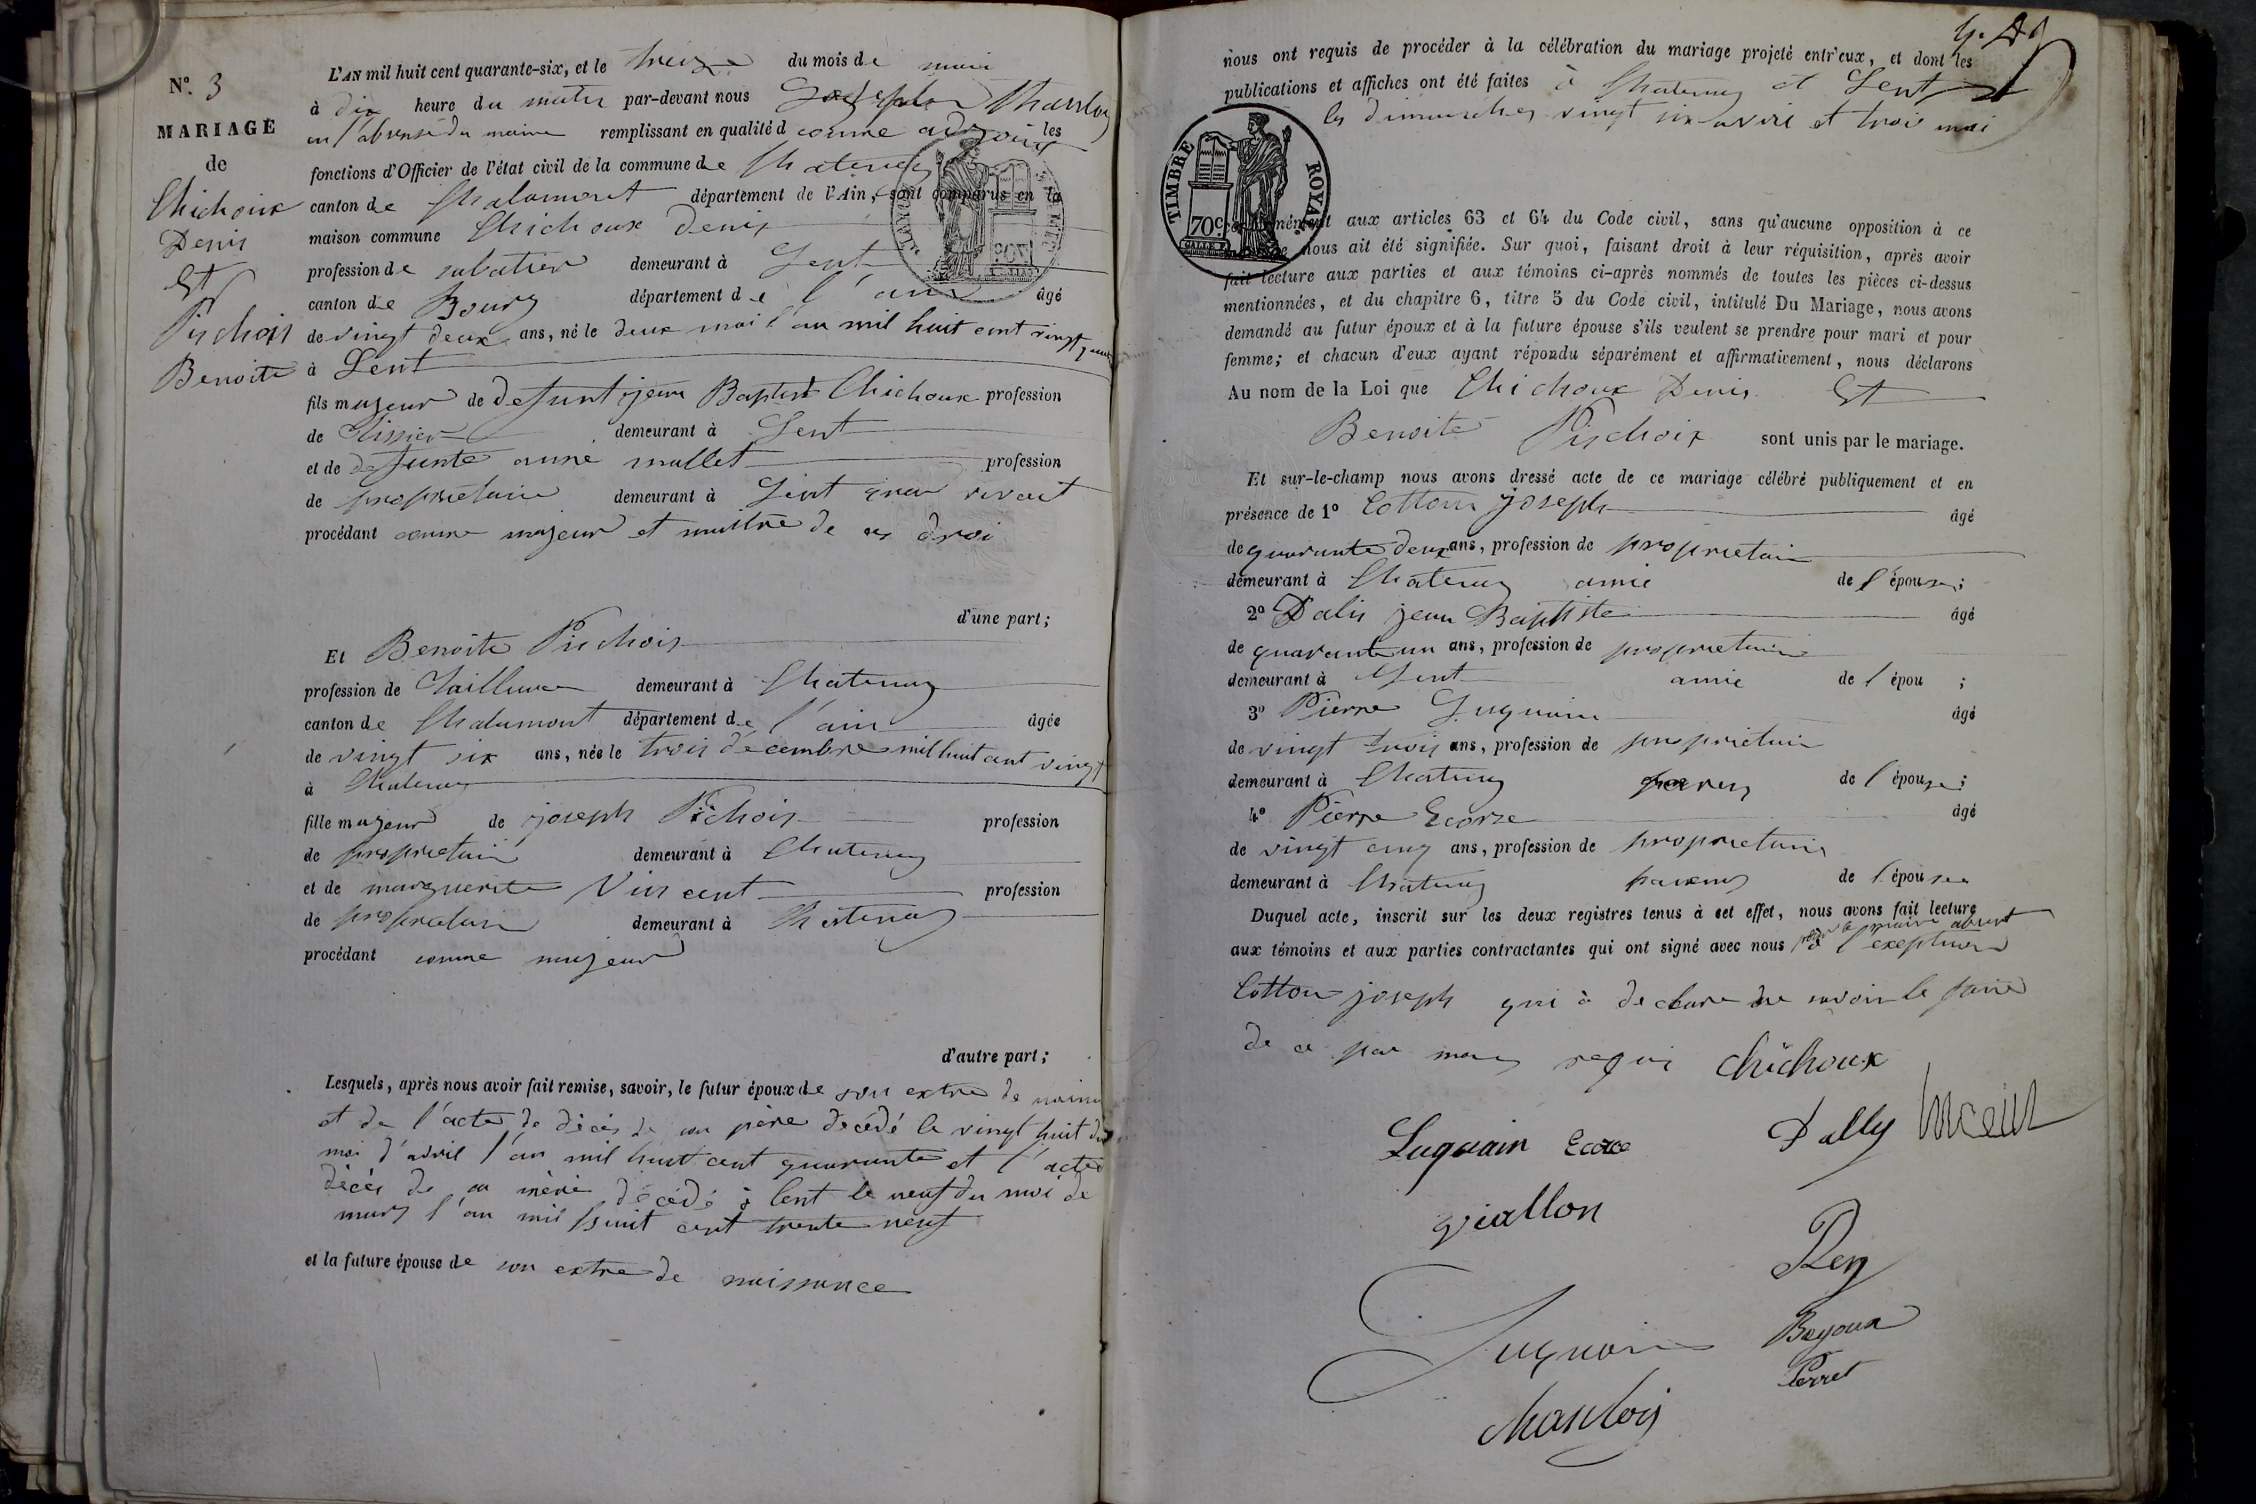 N°. 3
MARIAGE
de
Chichoux
Denis
Et
Pischois
Benoite
L'AN mil huit cent quarante-six, et le treize du mois de mai
à dix heure du matin par-devant nous Joseph Chanloy
en l'absense du maire remplissant en qualité d comme adjoint les
fonctions d'Officier de l'état civil de la commune de Chatenay
canton de Chalamont département de l'Ain, sont comparus en la
maison commune Chichoux Denis
profession de sabatier demeurant à Lent
canton de Bourg département de l'ain âgé
de vingt deux ans, né le deux mai l'an mil huit cent vingt quatre
à Lent
fils majeur de defunt jean Baptist Chichoux profession
de Tissier demeurant à Lent
et de defunte anne mallet profession
de proprietaire demeurant à Lent vivait
procédant comme majeur et maitre de ses droi
d'une part;
Et Benoite Pischois
profession de Tailleuse demeurant à Chatenay
canton de Chalamont département de l'ain âgée
de vingt six ans, née le trois décembre mil huit cent vingt
à Chatenay
fille majeur de joseph Pichois profession
de proprietair demeurant à Chatenay
et de marguerite Vincent profession
de propretair demeurant à Chatenay
procédant comme majeur
d'autre part;
Lesquels, après nous avoir fait remise, savoir, le futur époux de son extre de naim
et de l'acte de décès de son père décédé le vingt huit du
moi d'avril l'an mil huit cent quarante et l'acte
décès de sa mère décédé à Lent le neuf du moi de
mars l'an mil huit cent trente neuf
et la future épouse de son extre de naissance
nous ont requis de procéder à la célébration du mariage projeté entr'eux, et dont les
publications et affiches ont été faites à Chatenay et Lent
les dimanches vingt six avril et trois mai
TIMBRE ROYAL
70c.
aux articles 63 et 64 du Code civil, sans qu'aucune opposition à ce
nous ait été signifiée. Sur quoi, faisant droit à leur réquisition, après avoir
fait lecture aux parties et aux témoins ci-après nommés de toutes les pièces ci-dessus
mentionnées, et du chapitre 6, titre 5 du Code civil, intitulé Du Mariage, nous avons
demandé au futur époux et à la future épouse s'ils veulent se prendre pour mari et pour
femme; et chacun d'eux ayant répondu séparément et affirmativement, nous déclarons
Au nom de la Loi que Chichoux Denis Et
Benoite Pischoix sont unis par le mariage.
Et sur-le-champ nous avons dressé acte de ce mariage célébré publiquement et en
présence de 1° Cotton joseph âgé
de quarante deux ans, profession de proprietair
demeurant à Chatenay amie de l'épouse;
2° Dalis jean Baptiste âgé
de quarante un ans, profession de proprietaire
demeurant à Lent amie de l'épou ;
3° Pierre Luquain âgé
de vingt trois ans, profession de proprietair
demeurant à Chatenay de l'épouse;
4° Pierre Ecorse âgé
de vingt cinq ans, profession de proprietair
demeurant à Chatenay parens de l'épouse
Duquel acte, inscrit sur les deux registres tenus à cet effet, nous avons fait lecture
pour le maire absent
aux témoins et aux parties contractantes qui ont signé avec nous à l'exeption
Cotton joseph qui à declare ne savoir le faire
de ce par nous requi Chichoux
Luquain Ecorce Dally
Viallon
Rey
Luquain Bejoux
Perret
Chanloy